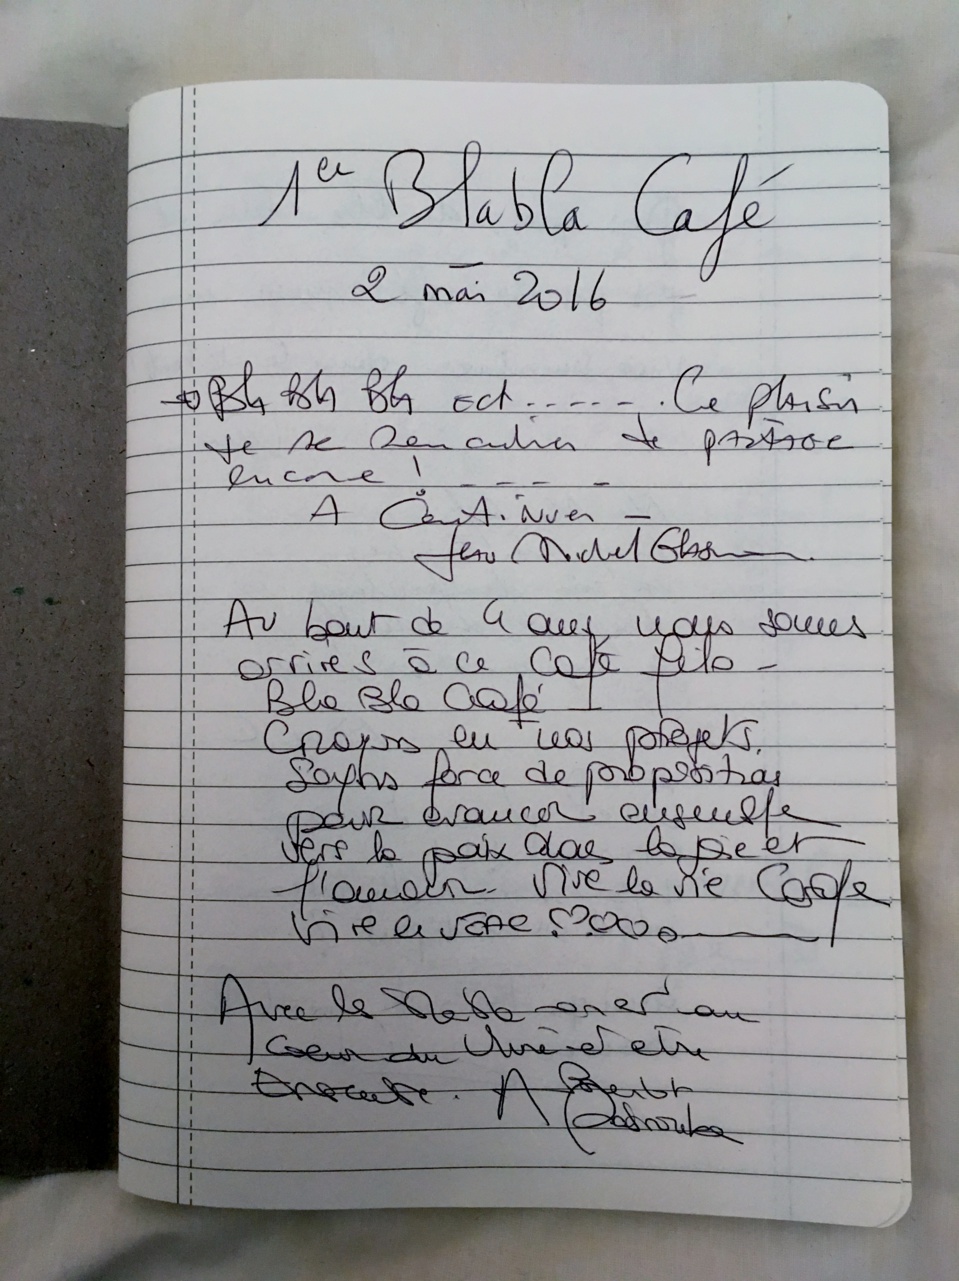 1er Blabla Café
2 mai 2016
→ Bla Bla Bla est ........ Ce plaisir
de se rencontrer de partage
encore ! - - - -
A Continuer -
Jean Michel
Au bout de 4 ans nous sommes
arrivés à ce Café philo -
Bla Bla Café
Croyons en nos projets.
Soyons force de propositions
pour avancer ensemble
vers la paix dans la joie et
l'amour. Vive la vie
Vive le
Avec le Blabla on est au
coeur du Vivre et d'être
ensemble. A